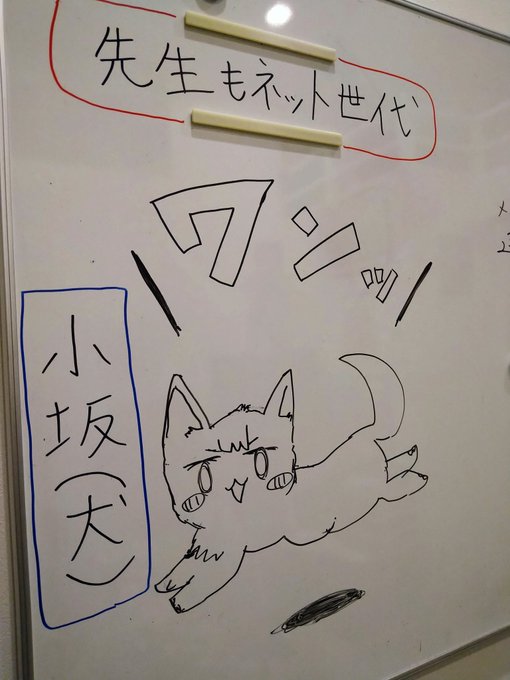 先生もネット世代
ワンッ
小坂(犬)